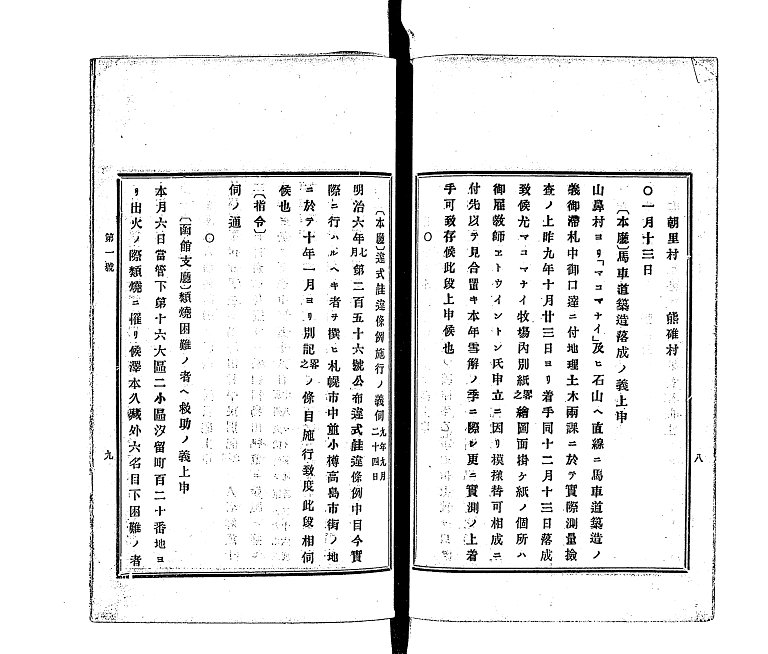 朝里村　熊碓村
〇一月十三日
〔本廳〕馬車道築造落成ノ義上申
山鼻村ヨリ「マコマナイ」及ヒ石山ヘ直線ニ馬車道築造ノ
義御滯札中御口達ニ付地理土木兩課ニ於テ實際測量撿
査ノ上昨九年十月廿三日ヨリ着手同十二月十三日落成
致候尤マコマナイ牧場內別紙畧之繪圖面掛ケ紙ノ個所ハ
御雇敎師エドウイントン氏申立ニ因リ模樣替可相成ニ
付先以テ見合置キ本年雪解ノ季ニ際シ更ニ實測ノ上着
手可致存候此段上申候也
〇
八
〔本廳〕違式詿違條例施行ノ義伺九年九月二十四日
明治六年七月第二百五十六號公布違式詿違條例中目今實
際ニ行ハルヘキ者ヲ撰ヒ札幌市中並小樽高島市街ノ地
ニ於テ十年一月ヨリ別記畧之ノ條目施行致度此段相伺
候也
〔指令〕
伺ノ通
〇
〔函館支廳〕類燒困難ノ者ヘ救助ノ義上申
本月六日當管下第十六大區二小區汐留町百二十番地ヨ
リ出火ノ際類燒ニ罹リ候澤本久藏外六名目下困難ノ者
第一號
九